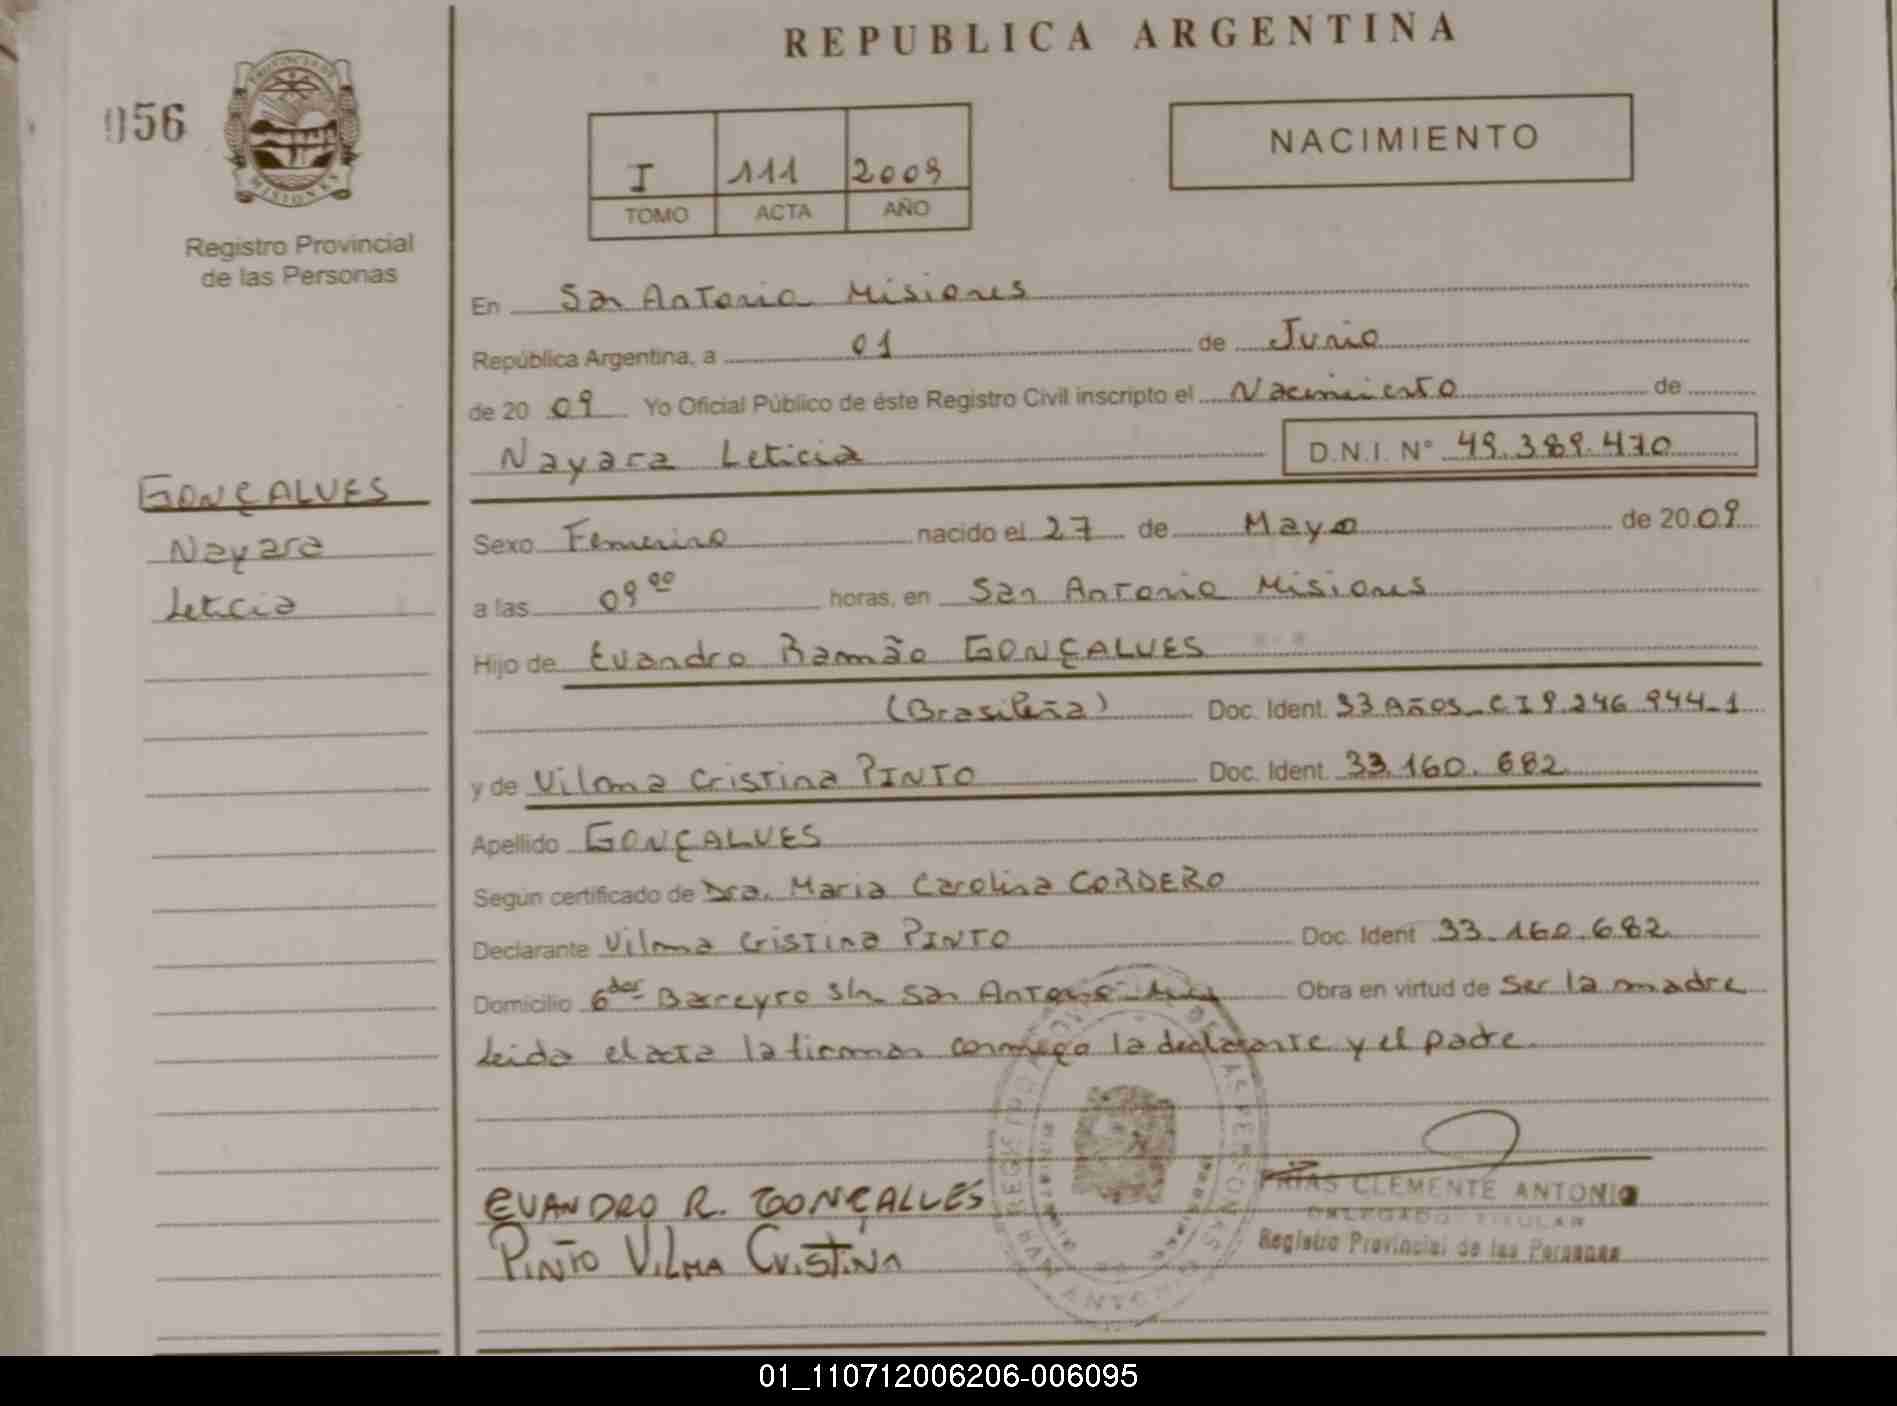 REPUBLICA ARGENTINA
056
PROVINCIA DE
MISIONES
Registro Provincial
de las Personas
I 111 2009
TOMO ACTA AÑO
NACIMIENTO
En San Antonio Misiones
República Argentina, a 01 de Junio
de 20 09 Yo Oficial Público de éste Registro Civil inscripto el Nacimiento de
Nayara Leticia D.N.I. Nº 49.389.470
GONÇALVES
Nayara
Leticia
Sexo Femenino nacido el 27 de Mayo de 20 09
a las 09 00 horas, en San Antonio Misiones
Hijo de Evandro Ramão GONÇALVES
(Brasileña) Doc. Ident. 33 Años - CI 9.246.944-1
y de Vilma Cristina PINTO Doc. Ident. 33.160.682
Apellido GONÇALVES
Según certificado de Dra. Maria Carolina CORDERO
Declarante Vilma Cristina PINTO Doc. Ident 33.160.682
Domicilio Barreyro s/n San Antonio Obra en virtud de Ser la madre
Leida el acta la firman conmigo la declarante y el padre
EVANDRO R. GONÇALLES
PINTO VILMA CRISTINA
FRIAS CLEMENTE ANTONIO
DELEGADO TITULAR
Registro Provincial de las Personas
01_110712006206-006095